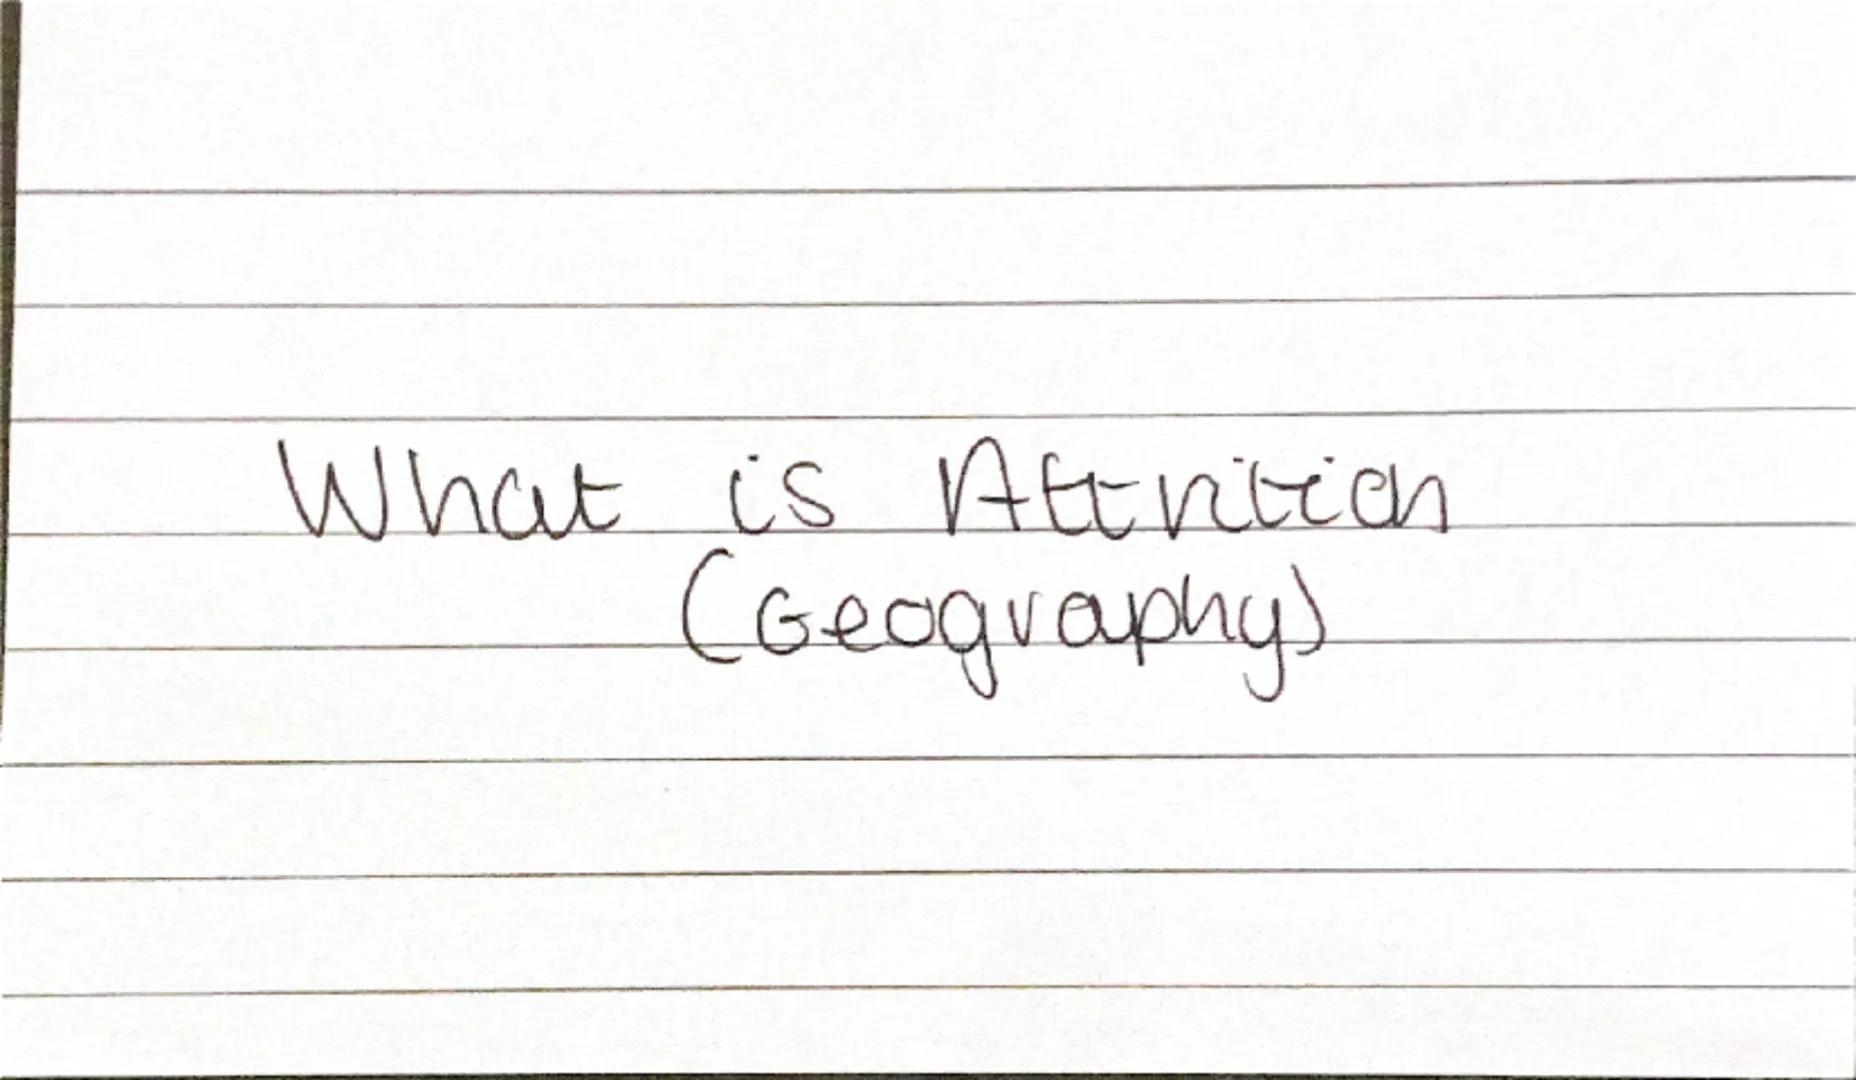 What is Attrition
(Geography)